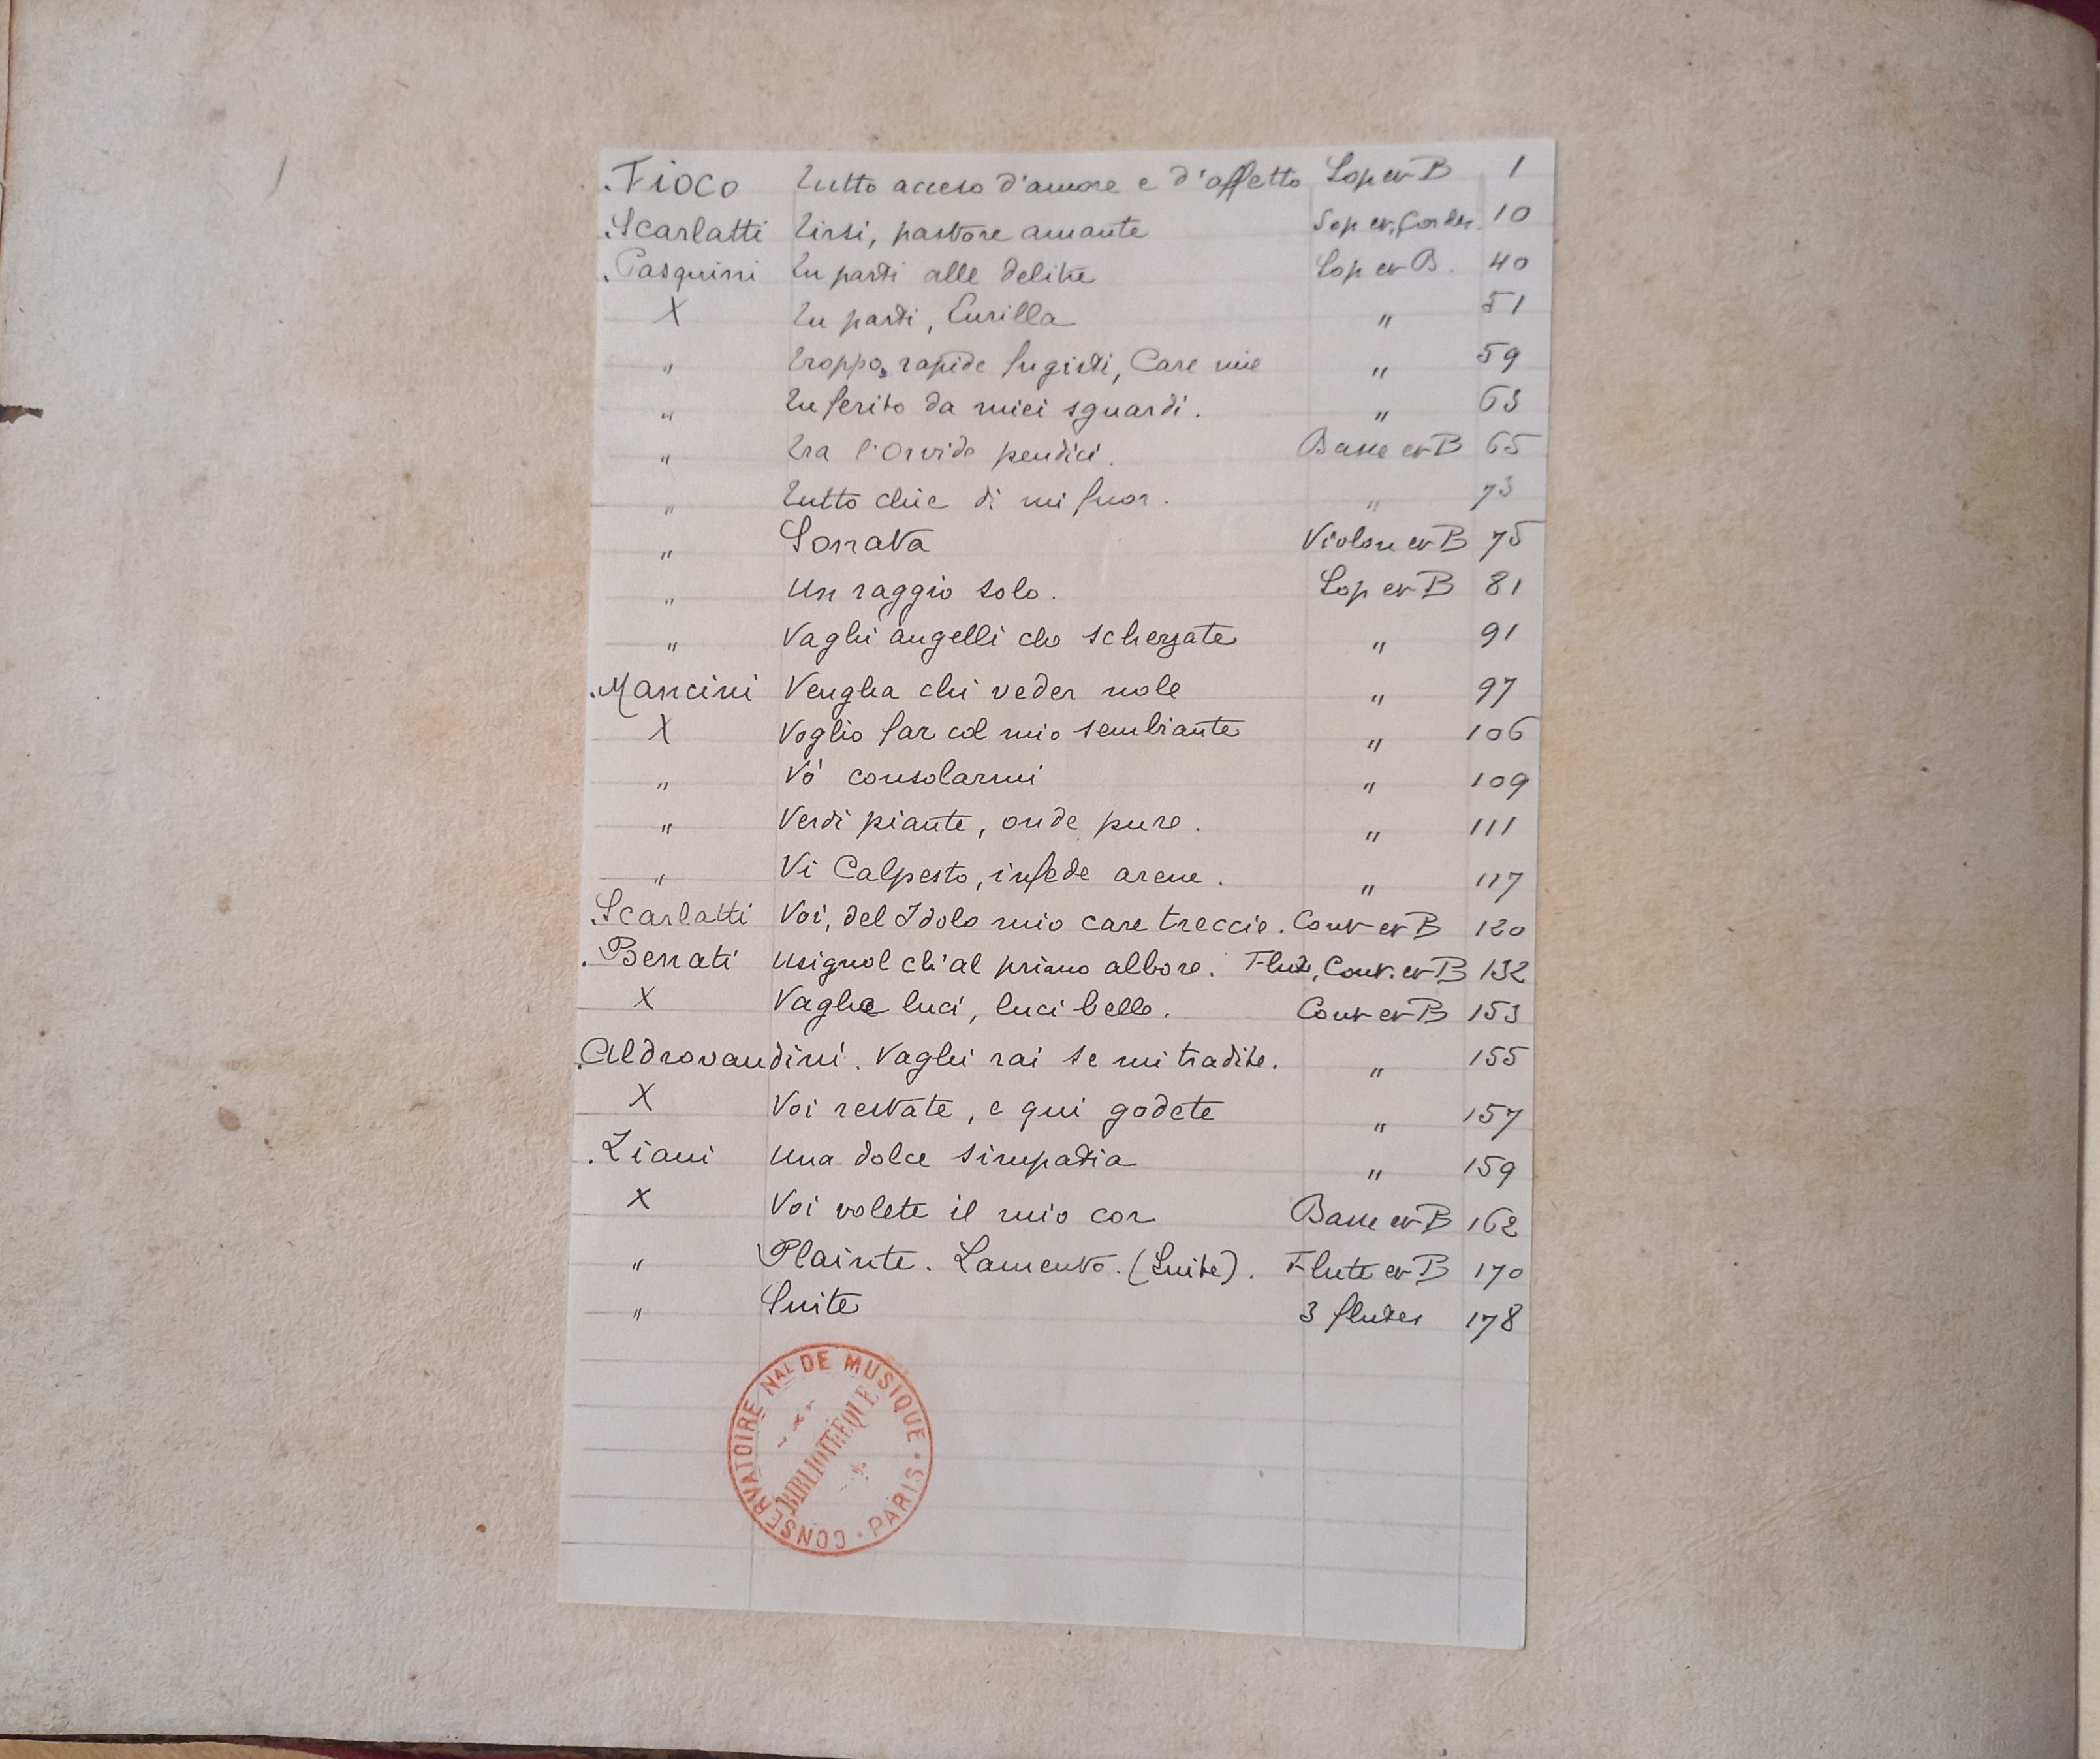 .Fioco Tutto acceso d'amore e d'affetto Sop et B 1
.Scarlatti Tirsi, pastore amante Sop et, Cordes. 10
.Pasquini Tu parti alle delitie Sop et B. 40
X Tu parti, Eurilla " 51
" Troppo, rapide fugisti, Care mie " 59
" Tu ferito da miei sguardi. " 63
" Tra l'orride pendici. Basse et B 65
" Tutto chie di mi fuor. " 73
" Sonata Violon et B 75
" Un raggio solo. Sop et B 81
" Vaghi augelli che scherzate " 91
.Mancini Vengha chi veder vole " 97
X Voglio far col mio sembiante " 106
" Vo' consolarmi " 109
" Verdi piante, onde pure. " 111
" Vi Calpesto, infede arene. " 117
.Scarlatti Voi, del Idolo mio care treccie. Contr et B 120
.Benati Usignol ch'al primo albore. Flute, Contr. et B 132
X Vaghe luci, luci belle. Contr et B 153
.Aldrovandini. Vaghi rai se mi tradite. " 155
X Voi restate, e qui godete " 157
.Liani Una dolce simpatia " 159
X Voi volete il mio cor Basse et B 162
" Plainte. Lamento. (Suite). Flute et B 170
" Suite 3 flutes 178
CONSERVATOIRE NAL DE MUSIQUE · PARIS ·
BIBLIOTHÈQUE